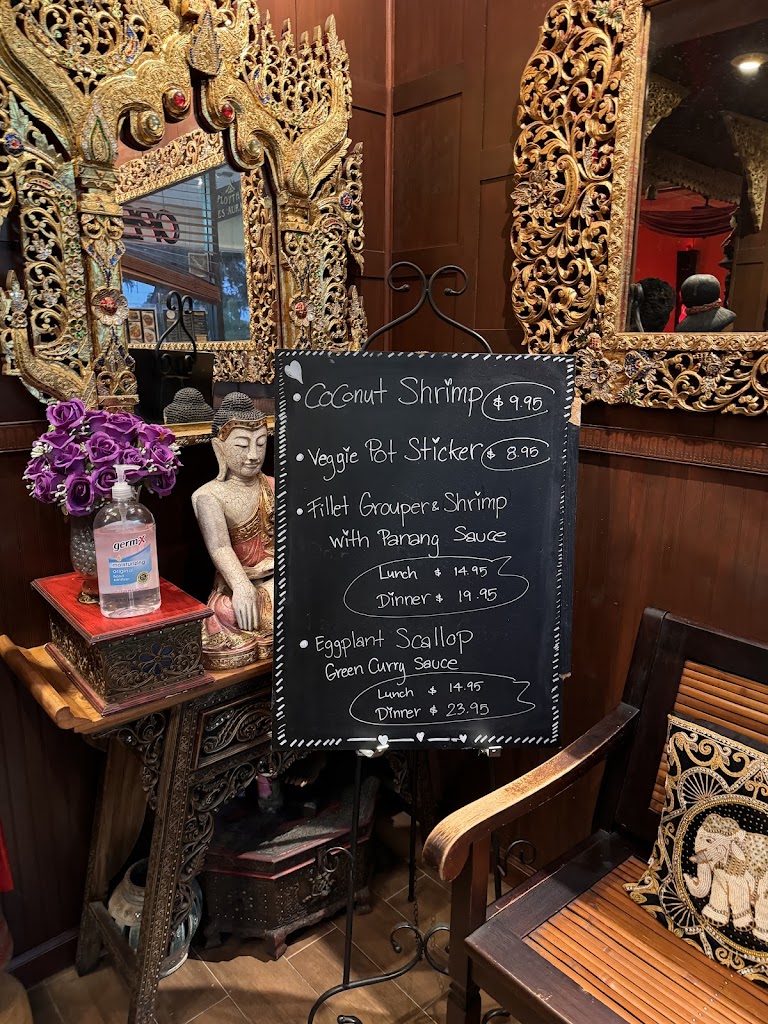 • Coconut Shrimp $ 9.95
• Veggie Pot Sticker $ 8.95
• Fillet Grouper & Shrimp
with Panang Sauce
Lunch $ 14.95
Dinner $ 19.95
• Eggplant Scallop
Green Curry Sauce
Lunch $ 14.95
Dinner $ 23.95
germ-x
moisturizing
original
hand
sanitizer